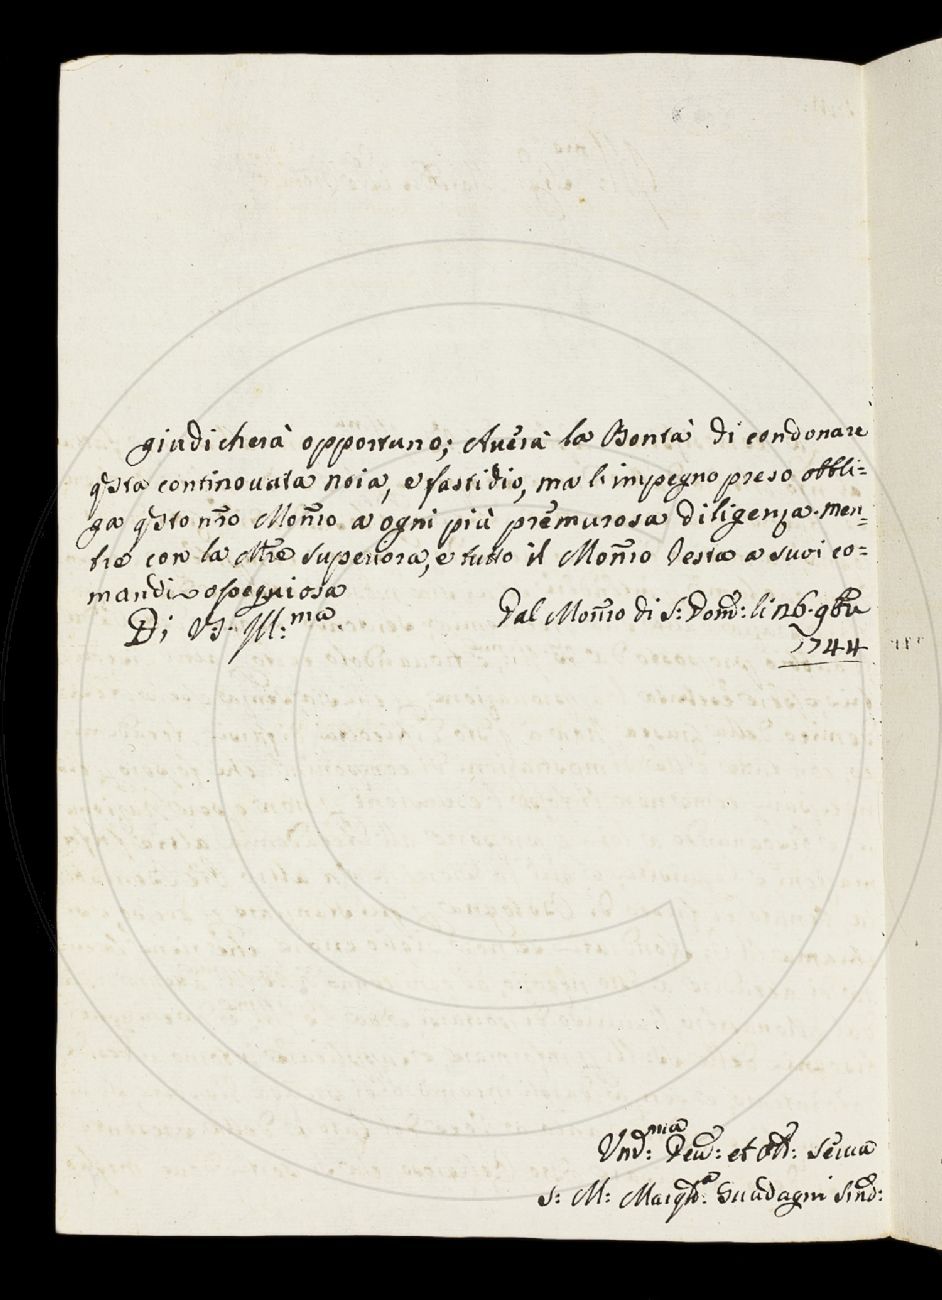 giudicherà opportuno; Averà la Bontà di condonare
q̃sta continovata noia, e fastidio, ma l'impegno preso obbli=
ga q̃sto nr̃o Moñro a ogni più premurosa diligenza. men=
tre con la Mr̃e Superiora, e tutto il Moñro resta a suoi co=
mandi ossequiosa
Di V. S. Ill:ma
Dal Moñro di S: Dom̃: li 26. 9bre
1744
Vm̃d:ma Dev: et Obb: Serva
S: M: Margh:a Guadagni Sind: